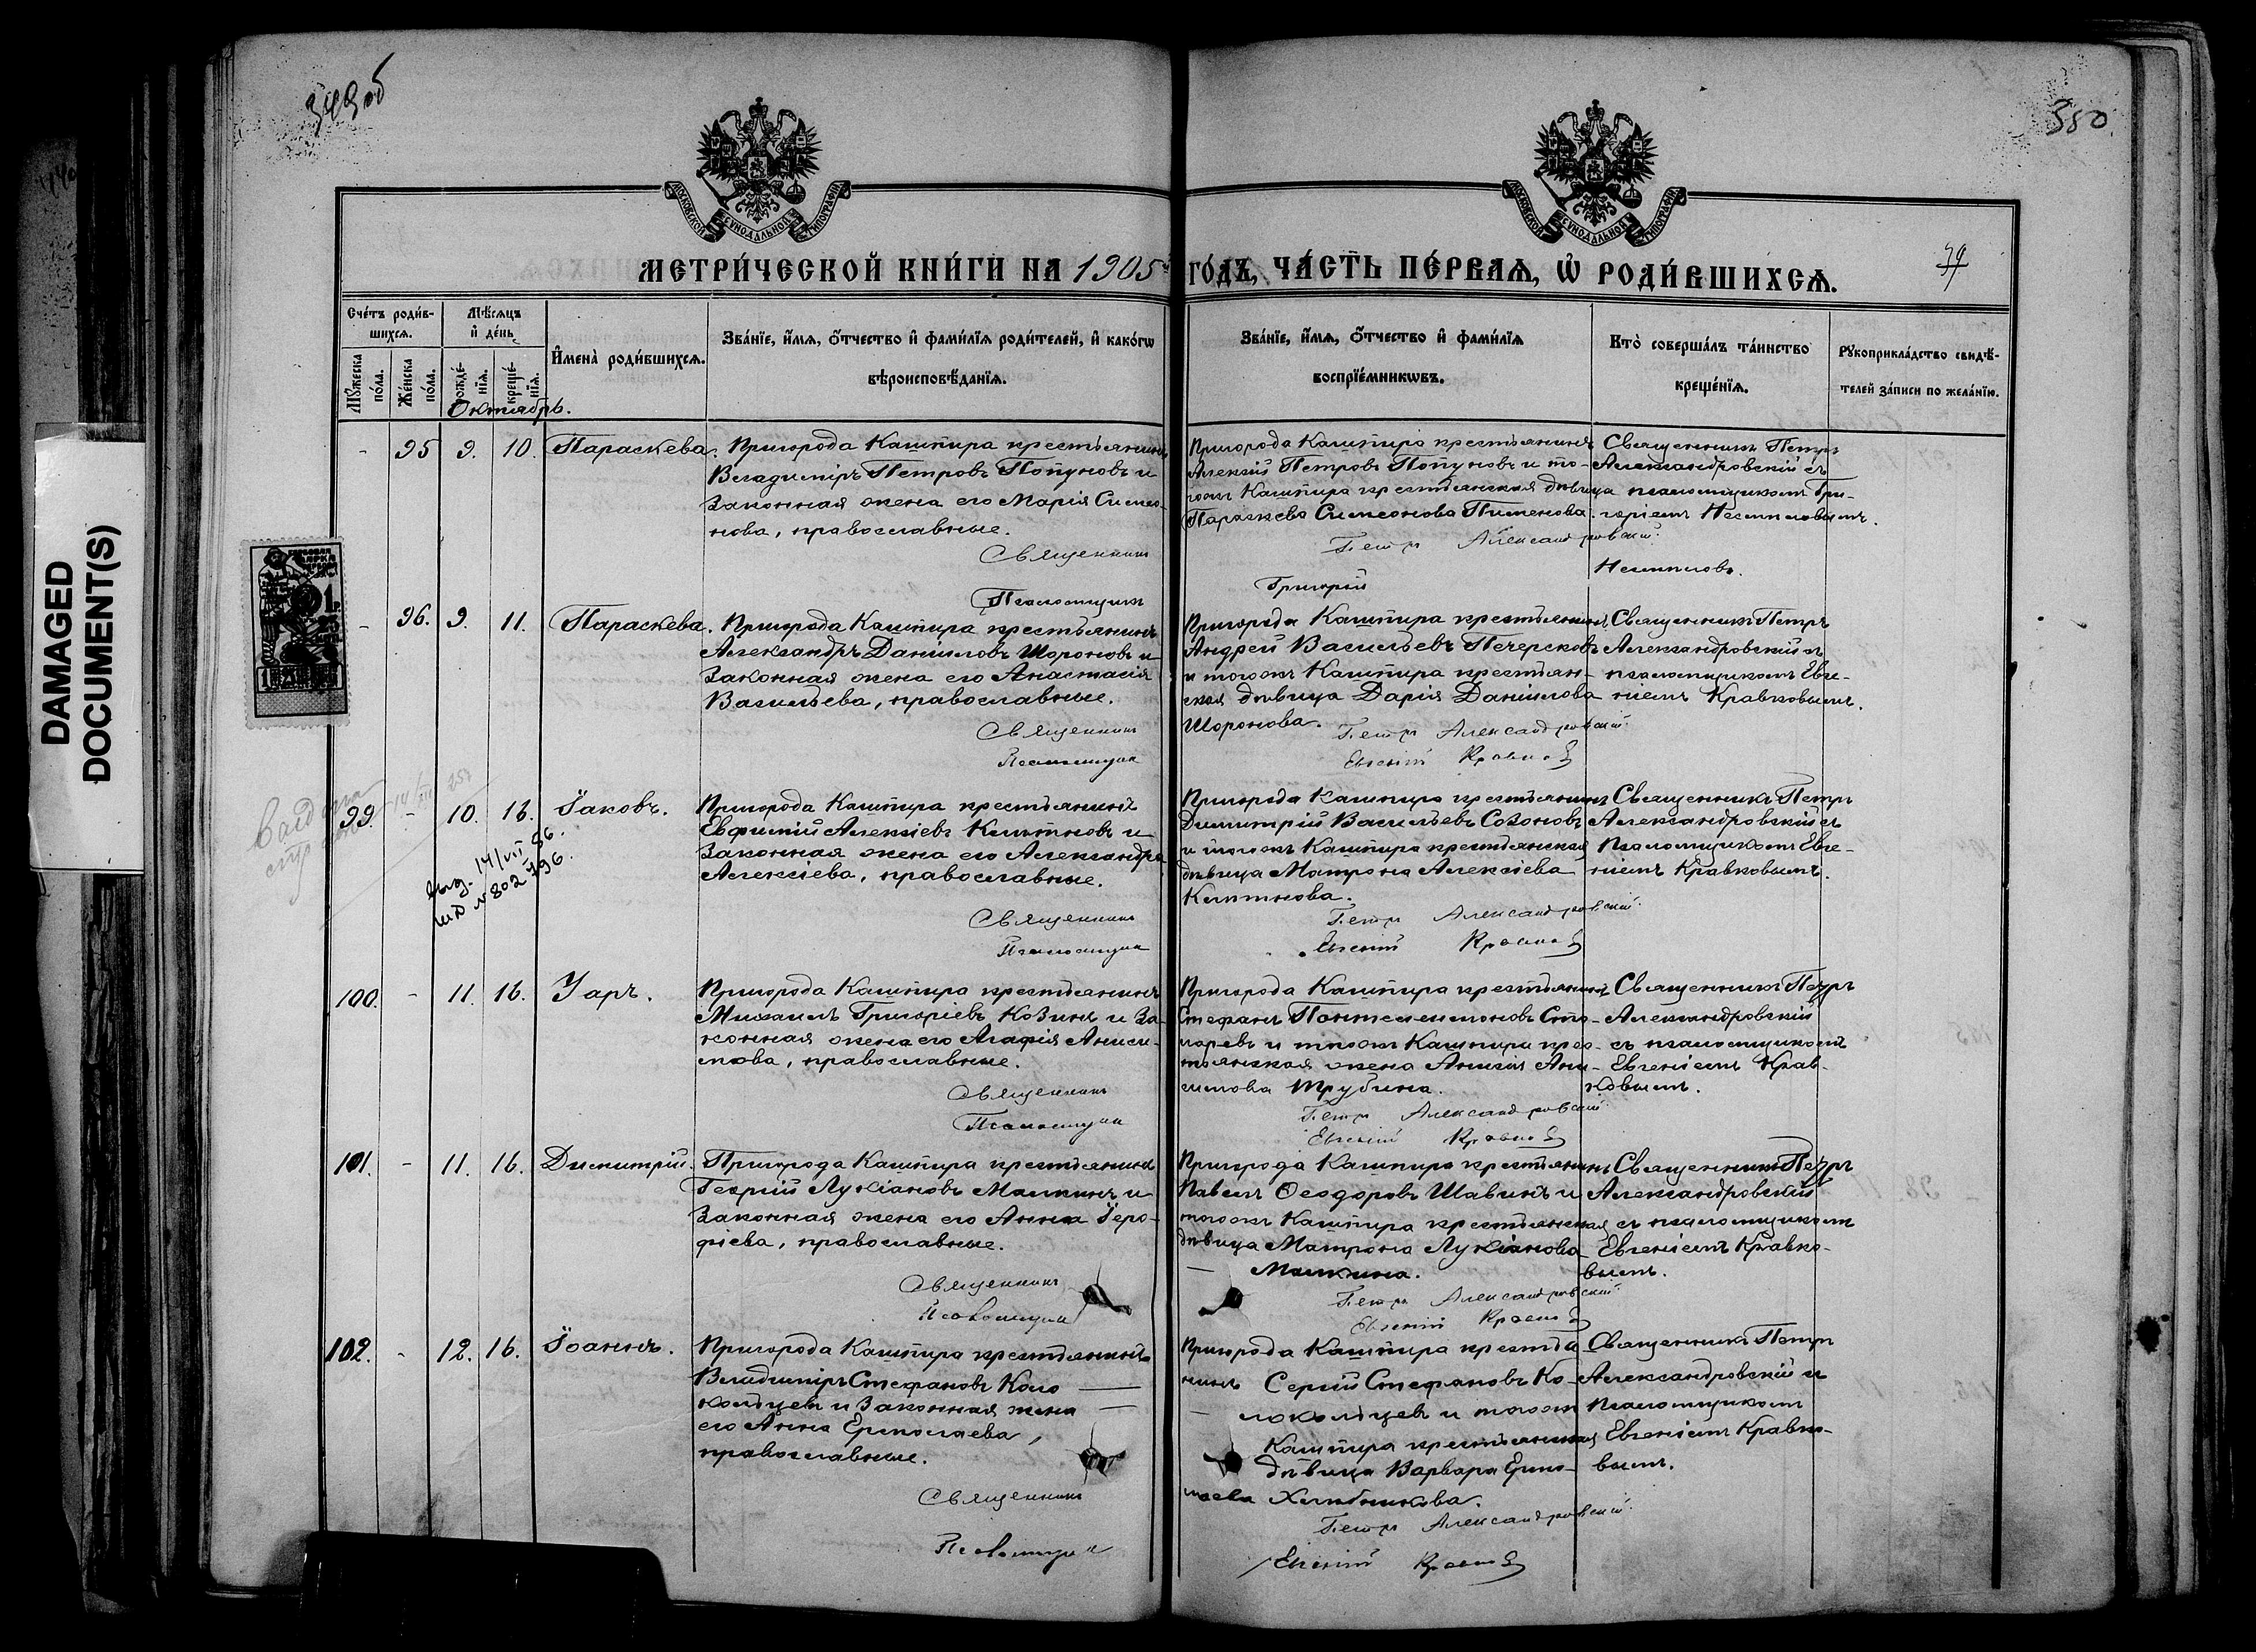 349об
350.
МОСКОВСКОЙ СѴНОДАЛЬНОЙ ТИПОГРАФІИ
МОСКОВСКОЙ СѴНОДАЛЬНОЙ ТИПОГРАФІИ
МЕТРИ́ЧЕСКОЙ КНИ́ГИ НА 1905й ГО́ДЪ, ЧА́СТЬ ПЕ́РВАѦ, Ѡ҆ РОДИ́ВШИХСѦ.
39
Сче́тъ роди́в-
шихсѧ.
Мѣ́сѧцъ
и҆ де́нь
Мꙋ́жеска
по́ла.
Же́нска
по́ла.
рожде́-
нїѧ.
креще́-
нїѧ.
Октябрь.
И҆мена̀ роди́вшихсѧ.
Зва́нїе, и҆́мѧ, ѻ҆́тчество и҆ фами́лїѧ роди́телей, и҆ како́гѡ
вѣроисповѣ́данїѧ.
Зва́нїе, и҆́мѧ, ѻ҆́тчество и҆ фами́лїѧ
воспрїе́мникѡвъ.
Кто̀ соверша́лъ та́инство
креще́нїѧ.
Рꙋкоприкла́дство свидѣ́-
телей за́писи по жела́нїю.
- 95 9. 10. Параскева.
Пригорода Кашпира крестьянинъ
Владиміръ Петровъ Попуновъ и
законная жена его Марія Симео-
нова, православные.
Священникъ
Псаломщикъ
Пригорода Кашпира крестьянинъ
Алексій Петровъ Попуновъ и то-
гожъ Кашпира крестьянская дѣвица
Параскева Симеонова Пименова.
Петръ Александровскій
Григорій
Священникъ Петръ
Александровскій съ
псаломщикомъ Гри-
горіемъ
- 96. 9. 11. Параскева.
Пригорода Кашпира крестьянинъ
Александръ Даниловъ Шороновъ и
законная жена его Анастасія
Васильева, православные.
Священникъ
Псаломщикъ
Пригорода Кашпира крестьянинъ
Андрей Васильевъ Печерсковъ
и тогожъ Кашпира крестьян-
ская дѣвица Дарія Данилова
Шоронова.
Петръ Александровскій
Евгеній Кравковъ
Священникъ Петръ
Александровскій съ
псаломщикомъ Евге-
ніемъ Кравковымъ.
99. - 10. 16. Іаковъ.
выд. 14/VII 86.
Пригорода Кашпира крестьянинъ
Евфимій Алексіевъ и
законная жена его Александра
Алексіева, православные.
Священникъ
Псаломщикъ
Пригорода Кашпира крестьянинъ
Димитрій Васильевъ Созоновъ
и тогожъ Кашпира крестьянская
дѣвица Матрона Алексіева
Петръ Александровскій
Евгеній Кравковъ
Священникъ Петръ
Александровскій съ
псаломщикомъ Евге-
ніемъ Кравковымъ.
100. - 11. 16. Уаръ.
Пригорода Кашпира крестьянинъ
Михаилъ Григоріевъ Козинъ и за-
конная жена его Агафія Аниси-
мова, православные.
Священникъ
Псаломщикъ
Пригорода Кашпира крестьянинъ
Стефанъ Пантелеимоновъ Сто-
ляревъ и тогожъ Кашпира крес-
тьянская жена Анисія Они-
симова Трубина.
Петръ Александровскій
Евгеній Кравковъ
Священникъ Петръ
Александровскій
съ псаломщикомъ
Евгеніемъ Крав-
ковымъ.
101. - 11. 16. Димитрій.
Пригорода Кашпира крестьянинъ
Георгій Лукіановъ Малкинъ и
законная жена его Анна Іеро-
фіева, православные.
Священникъ
Псаломщикъ
Пригорода Кашпира крестьянинъ
Павелъ Ѳеодоровъ Шавинъ и
тогожъ Кашпира крестьянская
дѣвица Матрона Лукіанова
Малкина.
Петръ Александровскій
Евгеній Кравковъ
Священникъ Петръ
Александровскій
съ псаломщикомъ
Евгеніемъ Кравко-
вымъ.
102. - 12. 16. Іоаннъ.
Пригорода Кашпира крестьянинъ
Владиміръ Стефановъ Коло-
кольцевъ и законная жена
его Анна Ермолаева,
православные.
Священникъ
Псаломщикъ
Пригорода Кашпира крестья-
нинъ Сергій Стефановъ Ко-
локольцевъ и тогожъ
Кашпира крестьянская
дѣвица Варвара Ермо-
лаева Хлѣбникова.
Петръ Александровскій
Евгеній Кравковъ
Священникъ Петръ
Александровскій съ
псаломщикомъ
Евгеніемъ Кравко-
вымъ.
DAMAGED
DOCUMENT(S)